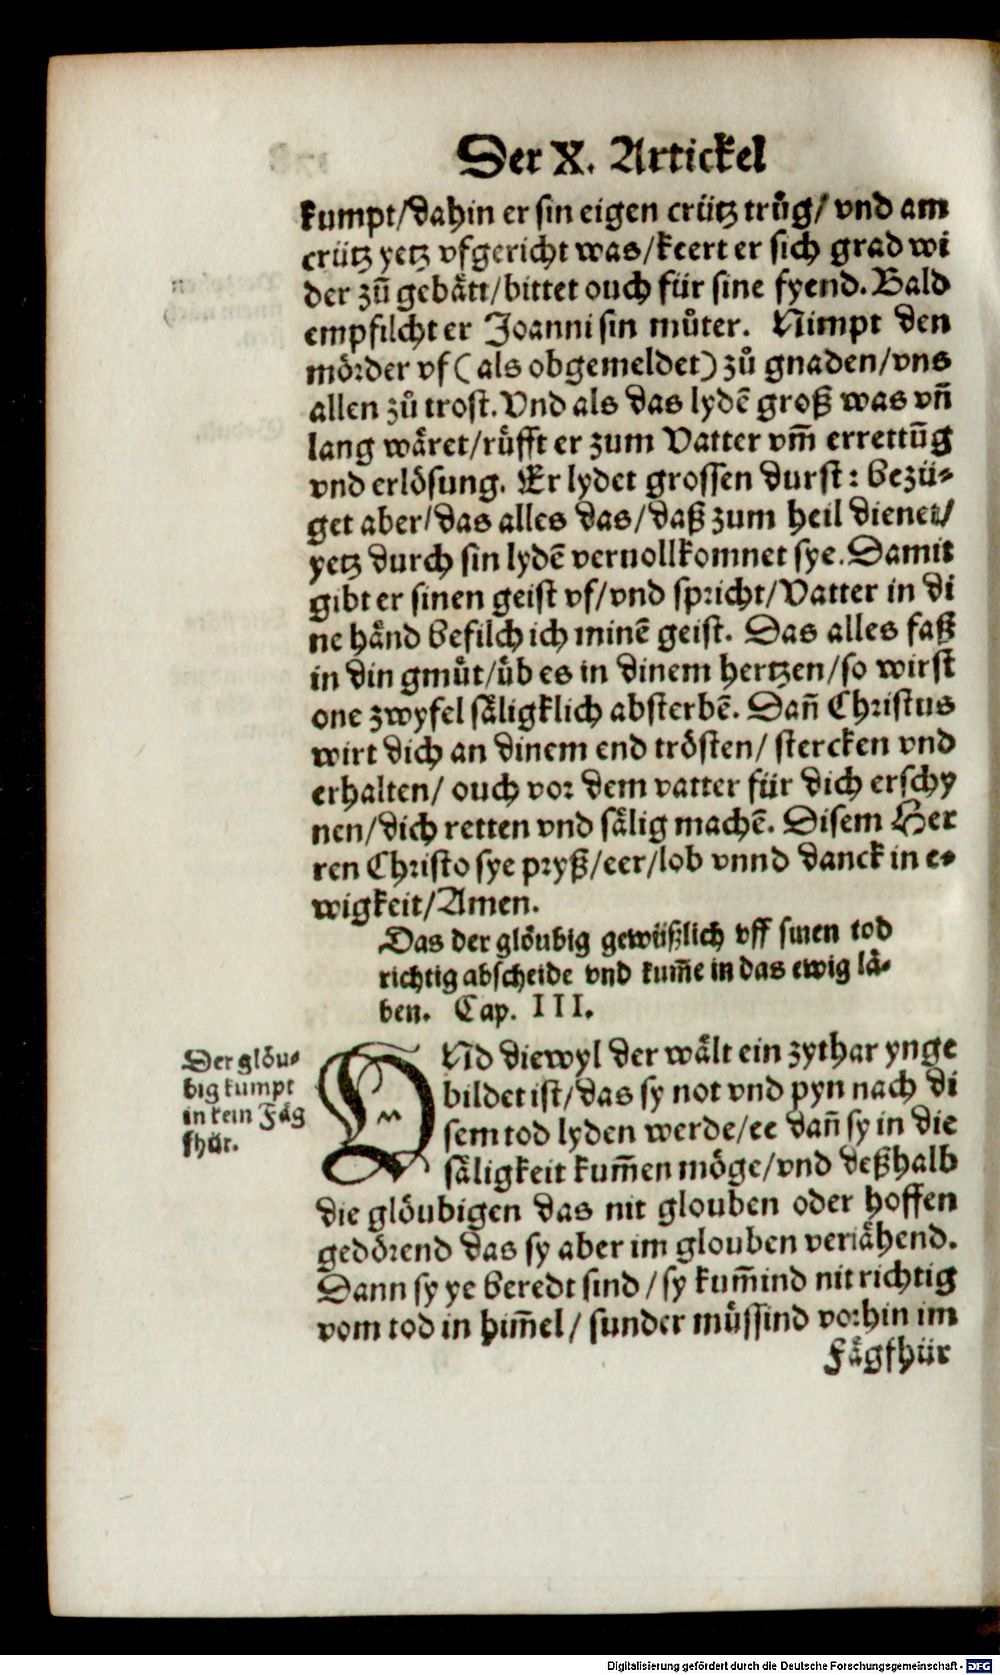 Der X. Artickel
kumpt/dahin er sin eigen crütz trůg/ vnd am
crütz yetz vfgericht was/keert er sich grad wi
der zů gebätt/bittet ouch für sine fyend. Bald
empfilcht er Joanni sin můter. Nimpt den
mörder vf (als obgemeldet) zů gnaden/vns
allen zů trost. Vnd als das lydē groß was vn̄
lang wäret/rüfft er zum Vatter vm̄ errettūg
vnd erlösung. Er lydet grossen durst: bezü-
get aber/das alles das/daß zum heil dienet/
yetz durch sin lydē veruollkomnet sye. Damit
gibt er sinen geist vf/vnd spricht/Vatter in di
ne händ befilch ich minē geist. Das alles faß
in din gmüt/üb es in dinem hertzen/so wirst
one zwyfel säligklich absterbē. Dañ Christus
wirt dich an dinem end trösten/ stercken vnd
erhalten/ ouch vor dem vatter für dich erschy
nen/dich retten vnd sälig machē. Disem Her
ren Christo sye pryß/eer/lob vnnd danck in e-
wigkeit/Amen.
Das der glöubig gewüßlich vff sinen tod
richtig abscheide vnd kum̄e in das ewig lä-
ben. Cap. III.
Der glöu-
big kumpt
in kein Fäg
fhür.
VNd diewyl der wält ein zythar ynge
bildet ist/das sy not vnd pyn nach di
sem tod lyden werde/ee dañ sy in die
säligkeit kum̄en möge/vnd deßhalb
die glöubigen das nit glouben oder hoffen
gedörend das sy aber im glouben veriähend.
Dann sy ye beredt sind/sy kum̄ind nit richtig
vom tod in him̄el/ sunder müssind vorhin im
Fägfhür
Digitalisierung gefördert durch die Deutsche Forschungsgemeinschaft - DFG